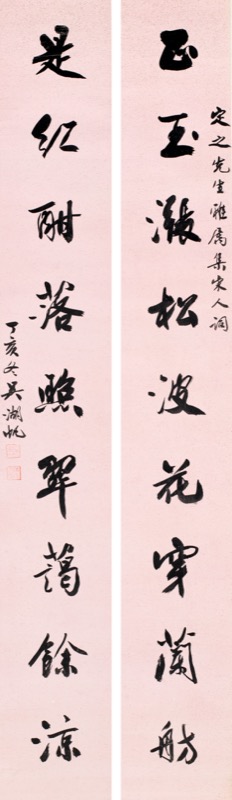 正玉漲松波花穿蘭舫
定之先生雅屬集宋人詞
是紅酣落照翠藹餘涼
丁亥冬吳湖帆